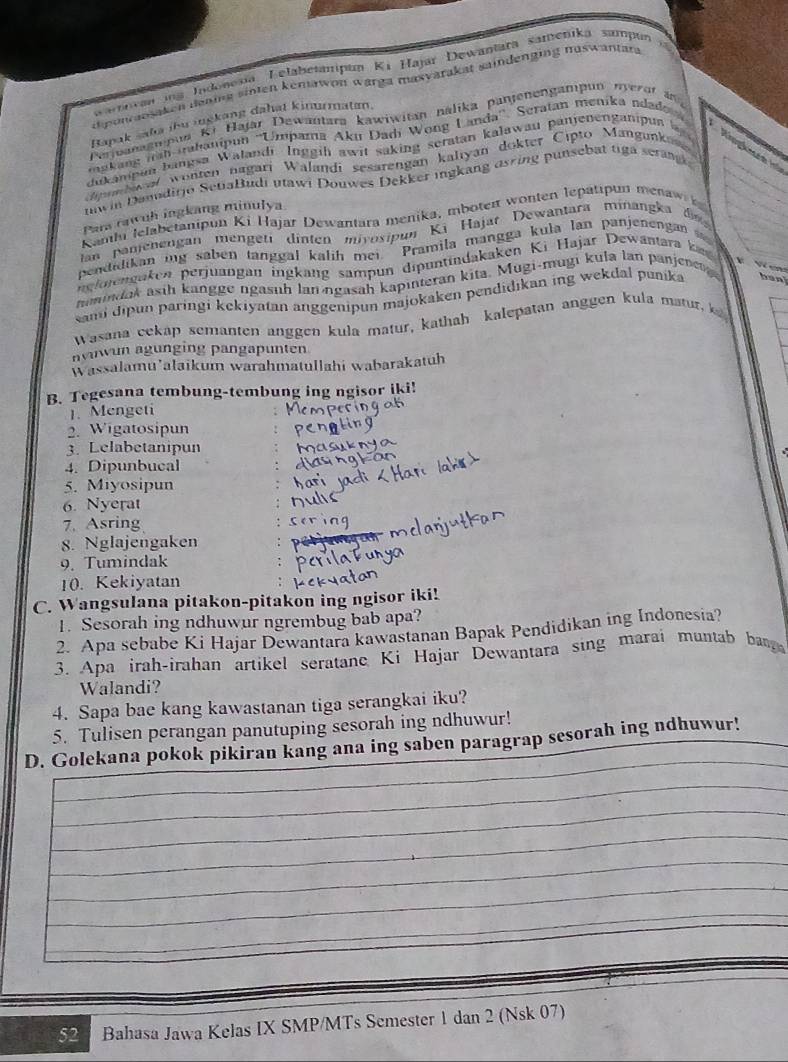 ing Indonesia. Lelabetanipun Ki Hajar Dewantara samenika sampun
dening sinten kemawon warga masyarakat saindenging nuswantara
Bapak saha ibu ingkang dahat kinurmatan,
Ki Hajar Dewantara kawiwitan nalika panjenenganipun nyerat
ingkang irah-irahanipun "Umpama Aku Dadi Wong Landa". Seratan menika
bangsa Walandi. Inggih awit saking seratan kalawau panjenenganipun
wonten nagari Walandi sesarengan kaliyan dokter Cipto
Danudirjo SetiaBudi utawi Douwes Dekker ingkang asring punsebat tiga
Para rawuh ingkang minulya.
Kanthi lelabetanipun Ki Hajar Dewantara menika, mboten wonten lepatipun menawi
lan panjenengan mengeti dinten miyosipun Ki Hajar Dewantara minangka
pendidikan ing saben tanggal kalih mei. Pramila mangga kula lan panjenengan
nglajengaken perjuangan ingkang sampun dipuntindakaken Ki Hajar Dewantara
tumindak asih kangge ngasuh lan ngasah kapinteran kita. Mugi-mugi kula lan
sami dipun paringi kekiyatan anggenipun majokaken pendidikan ing wekdal punika
Wasana cekap semanten anggen kula matur, kathah kalepatan anggen kula matur,
nyuwun agunging pangapunten.
Wassalamu'alaikum warahmatullahi wabarakatuh
B. Tegesana tembung-tembung ing ngisor iki!
1. Mengeti : Memperingati
2. Wigatosipun : penting
3. Lelabetanipun : masuknya
4. Dipunbucal : diasingkan
5. Miyosipun : hari jadi < Hari lahir>
6. Nyerat : nulis
7. Asring : sering
8. Nglajengaken : melanjutkan
9. Tumindak : perilakunya
10. Kekiyatan : kekyatan
C. Wangsulana pitakon-pitakon ing ngisor iki!
1. Sesorah ing ndhuwur ngrembug bab apa?
2. Apa sebabe Ki Hajar Dewantara kawastanan Bapak Pendidikan ing Indonesia?
3. Apa irah-irahan artikel seratane Ki Hajar Dewantara sing marai muntab bangsa
Walandi?
4. Sapa bae kang kawastanan tiga serangkai iku?
5. Tulisen perangan panutuping sesorah ing ndhuwur!
D. Golekana pokok pikiran kang ana ing saben paragrap sesorah ing ndhuwur!
52 Bahasa Jawa Kelas IX SMP/MTs Semester 1 dan 2 (Nsk 07)